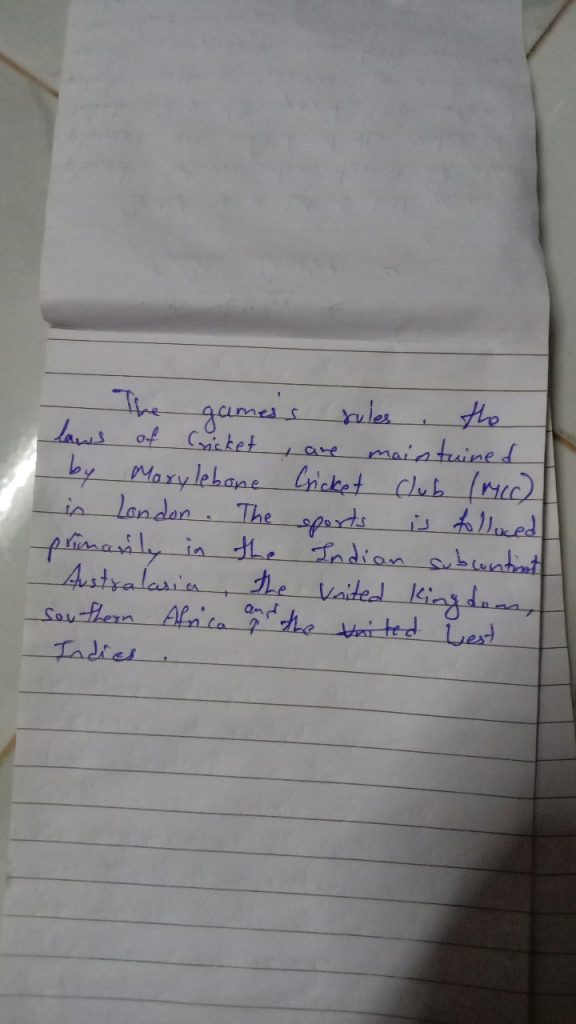 The games's rules, the
laws of Cricket, are maintained
by Marylebone Cricket Club (MCC)
in London. The sports is follwed
primarily in the Indian subcontinent
Australasia, the United Kingdom,
southern Africa and the United West
Indies.